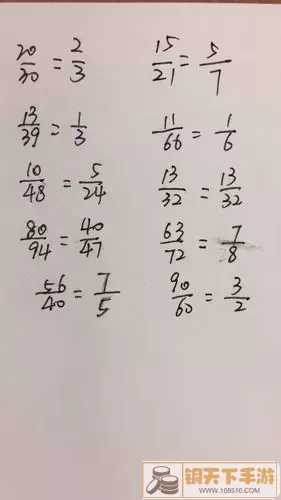 20/30 = 2/3 15/21 = 5/7
13/39 = 1/3 11/66 = 1/6
10/48 = 5/24 13/32 = 13/32
80/94 = 40/47 63/72 = 7/8
56/40 = 7/5 90/60 = 3/2
铜天下手游
www.168510.com